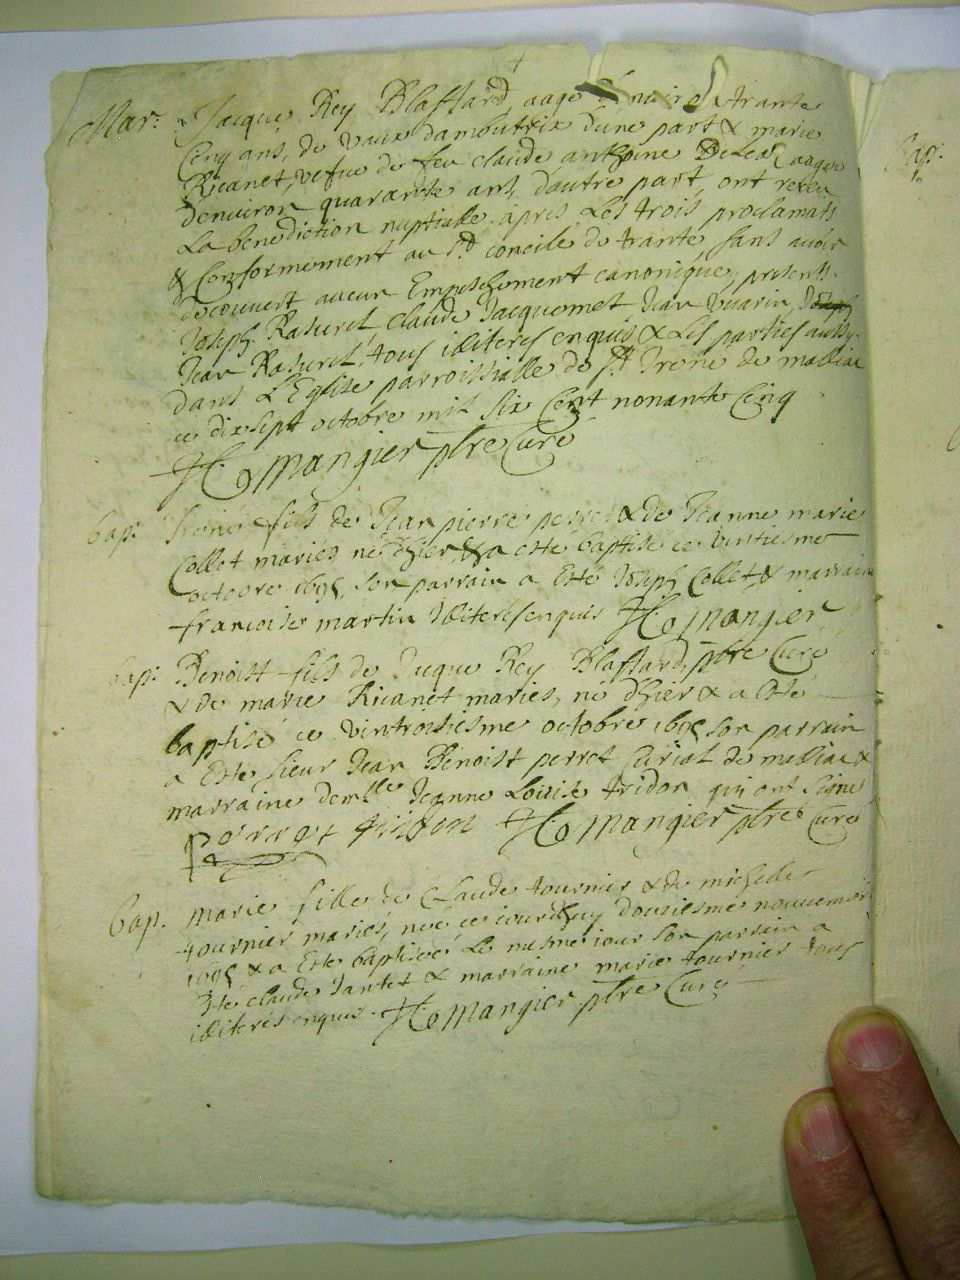 Mar. Jacque Rey Blassard, aage denuiron trante
Cinq ans, de vaux dambutrix dune part & marie
Ricanet, vefue de feu claude anthoine aagee
Denuiron quarante ans, dautre part, ont receu
La benediction nuptialle apres Les trois proclamats
& Conformement au sd concile de trante, sans auoir
decouuert aucun Empeschement canonique, presents
Joseph Rasurel, claude Jacquemet Jean Vuarin
Jean Rasurel, tous illiteres enquis & Les parties aussy
dans L'Eglise parroissialle de st Irene de malliac
ce dix sept octobre mil six Cent nonante Cinq
Mangier pbre Curé
bap. fils de Jean pierre perret & de Jeanne marie
Collet mariés né dhier, & a esté baptisé ce vintiesme
octobre 1695, son parrain a Esté Joseph Collet, & marraine
francoise martin Illiteres enquis Mangier
pbre Curé
bap. Benoist fils de Jacque Rey Blassard,
& de marie Ricanet maries, né dhier & a Esté
baptisé ce vintroisiesme octobre 1695 son parrain
a Esté sieur Jean Benoist perret Curial de malliac &
marraine demlle Jeanne Louise tridon qui ont signé
Perret tridon Mangier pbre Curé
bap. Marie fille de Claude tournier & de michelle
tournier mariés, née ce iourdhuy dousiesme nouuembre
1695 & a Esté baptisée Le mesme iour son parrain a
Esté claude Jantet & marraine marie tournier tous
illiterés enquis. Mangier pbre Curé
bap.